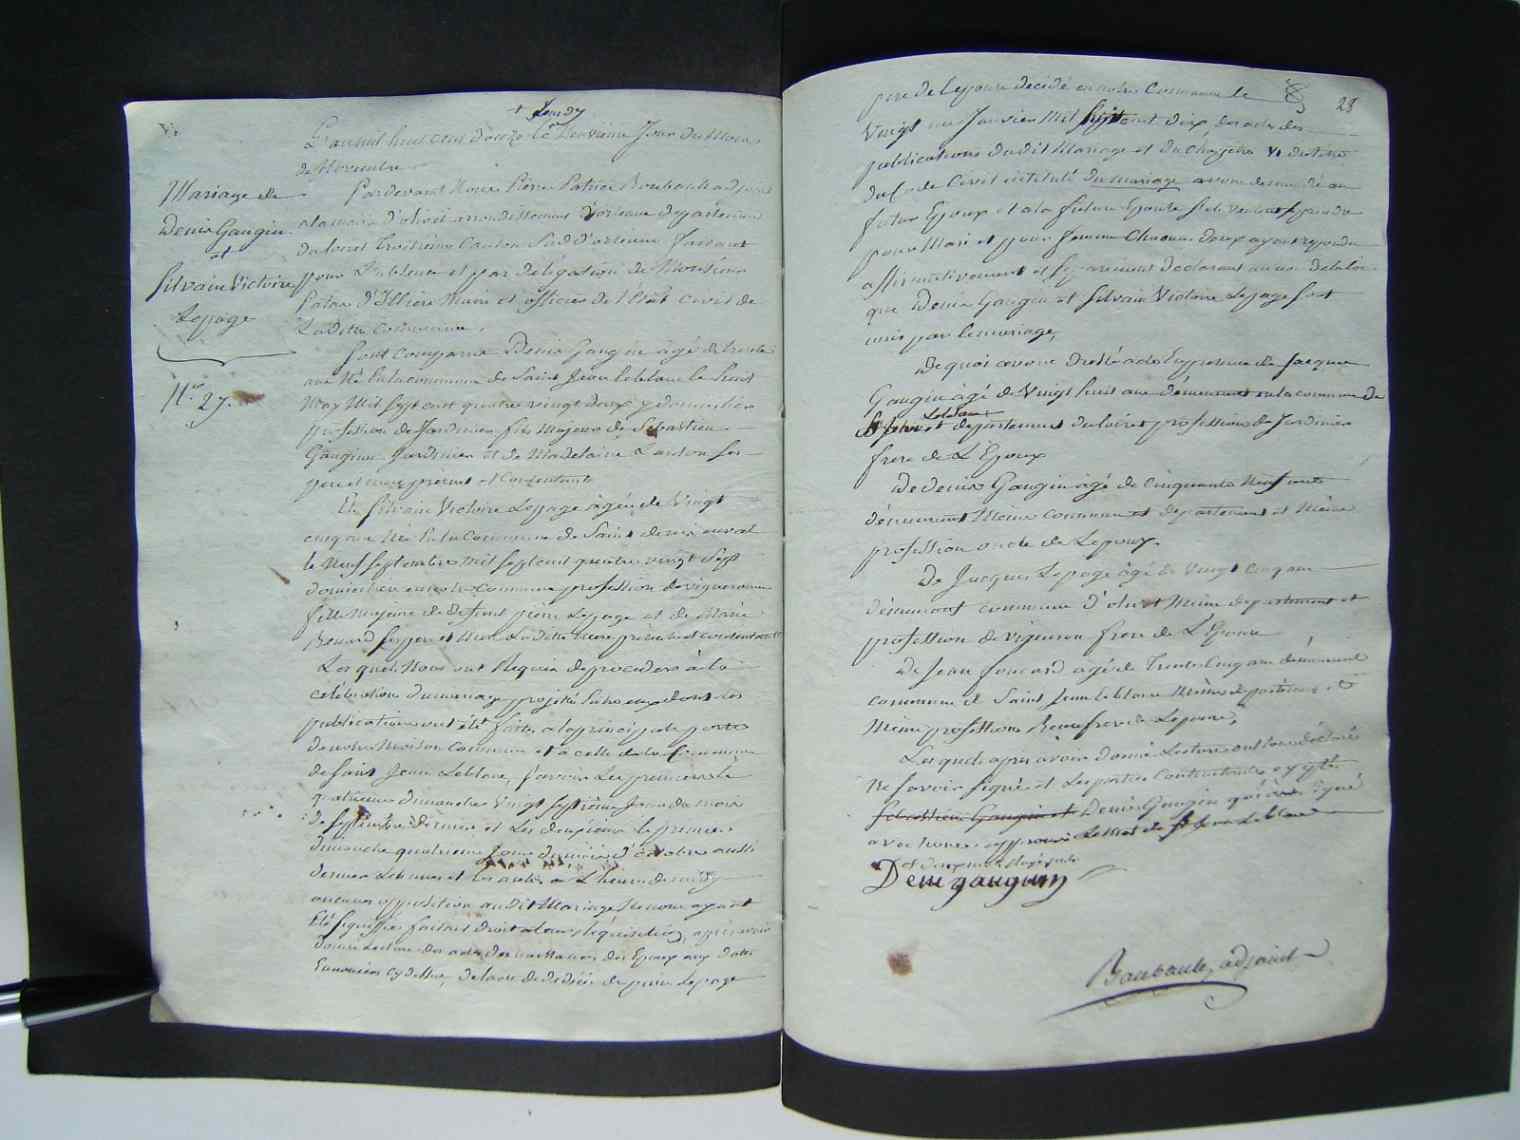 + Lundy
L'an mil huit cent douze le Neuvieme Jour du Mois
de Novembre
Pardevant Nous Pierre Patrice Boubault adjoint
a la mairie d'olivet arrondissement d'orleans departement
du loiret troisieme Canton Sud d'orleans faisant
pour l'absence et par délégation de Monsieur
d'Illiers Maire et officier de l'état Civil de
La dite Commune.
Mariage de
Denis Gaugin
et
Silvain Victoire
Lepage
N.º 27.
Sont comparus Denis Gaugin âgé de trente
ans Né en la commune de Saint Jean le blanc le huit
May Mil sept cent quatre vingt deux y domicilié
profession de Jardinier fils Majeur de Sébastien
Gaugin Jardinier et de Madelaine Landon ses
pere et mere present et Consentants
Et Silvain Victoire Lepage âgée de Vingt
cinq ans Née en la Commune de Saint denis en val
le Neuf Septembre mil sept cent quatre vingt Sept
domiciliée en notre commune profession de vigneronne
fille Majeure de defunt pierre Lepage et de Marie
Bouard ses pere et Mere La dite mere présente et consentante
Lesquels Nous ont Requis de procéder à la
célébration du mariage projeté entre eux dont les
publications ont été faites a la principale porte
de notre Maison Commune et a celle de la Commune
de Saint Jean Leblanc, Savoir Les premieres le
quatrieme dimanche Vingt Septieme Jour du mois
de Septembre dernier et Les deuxiemes le premier
dimanche quatrieme Jour du mois d'octobre aussi
dernier Les unes et les autres a L'heure de midy
aucune opposition au dit Mariage Ne nous ayant
Eté Signifiée faisant droit a leur Réquisition, après avoir
donné Lecture des actes de naissances des Epoux aux dates
Enoncées cy dessus, de l'acte de décès de pierre Lepage
28
pere de Lepouse décédé en notre Commune le
Vingt un Janvier Mil huit cent dix, des actes des
publications du dit Mariage et du Chapitre VI du titre
du Code Civil intitulé du mariage avons demandé au
futur Epoux et a la future Epouse S'ils veulent se prendre
pour Mari et pour femme Chacun d'eux ayant repondu
affirmativement et Séparément declarons au nom de la loi
que Denis Gaugin et Silvain Victoire Lepage sont
unis par le mariage,
De quoi avons Dressé acte En presence de Jacques
Gaugin âgé de Vingt huit ans demeurant en la commune de
St Jean Leblanc departement du loiret profession de Jardinier
frere de L'Epoux
De Denis Gaugin âgé de Cinquante Neuf ans
demeurant Même commune et departement et Même
profession oncle de Lepoux.
De Jacques Lepage âgé de Vingt cinq ans
demeurant commune d'olivet Même departement et
profession de vigneron frere de L'Epouse
De Jean foucard agé de Trente Cinq ans demeurant
commune de Saint Jean le blanc Même departement et
Même profession Beau frere de Lepouse,
Lesquels apres avoir donné Lecture ont tous déclaré
Ne Savoir Signer et Les parties Contractantes excepté
Sébastien Gaugin et Denis Gaugin qui ont Signé
avec Nous approuvé Le mot de St Jean Leblanc
Denis gauguin
Boubault, adjoint